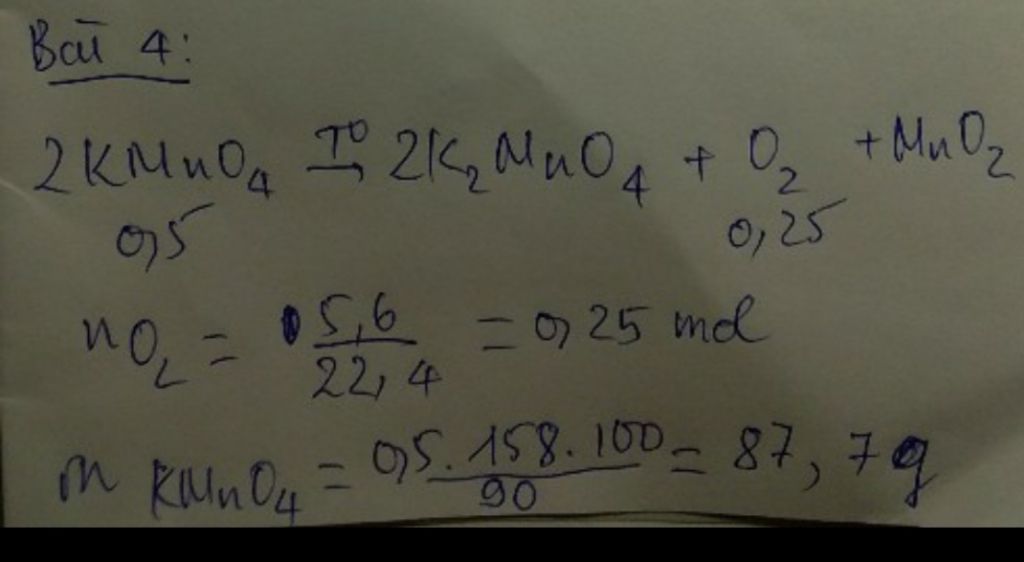 Bài 4:
2KMnO₄ →(T⁰) 2K₂MnO₄ + O₂ + MnO₂
0,5 0,25
nO₂ = 5,6/22,4 = 0,25 mol
m KMnO₄ = 0,5.158.100/90 = 87,7g